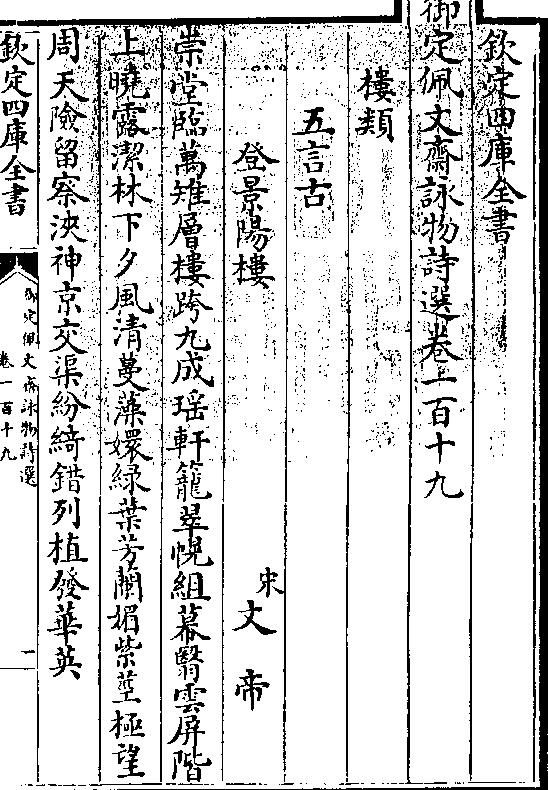 欽定四庫全書
御定佩文齋詠物詩選卷一百十九
樓類
五言古
登景陽樓
宋文帝
崇堂臨萬雉層樓跨九成瑶軒籠翠幌組幕翳雲屏階
上曉露潔林下夕風清蔓藻嬛綠葉芳蘭媚紫莖極望
周天險留察浹神京交渠紛綺錯列植發華英
欽定四庫全書
御定佩文齋詠物詩選
卷一百十九
一